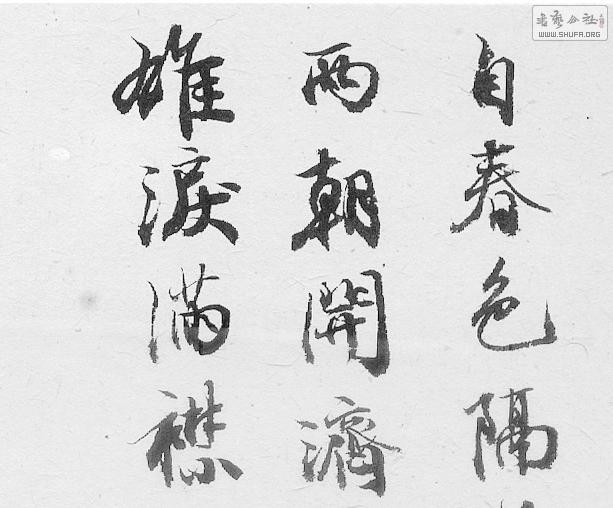 自春色隔
兩朝開濟
雄淚滿襟
書藝公社
WWW.SHUFA.ORG